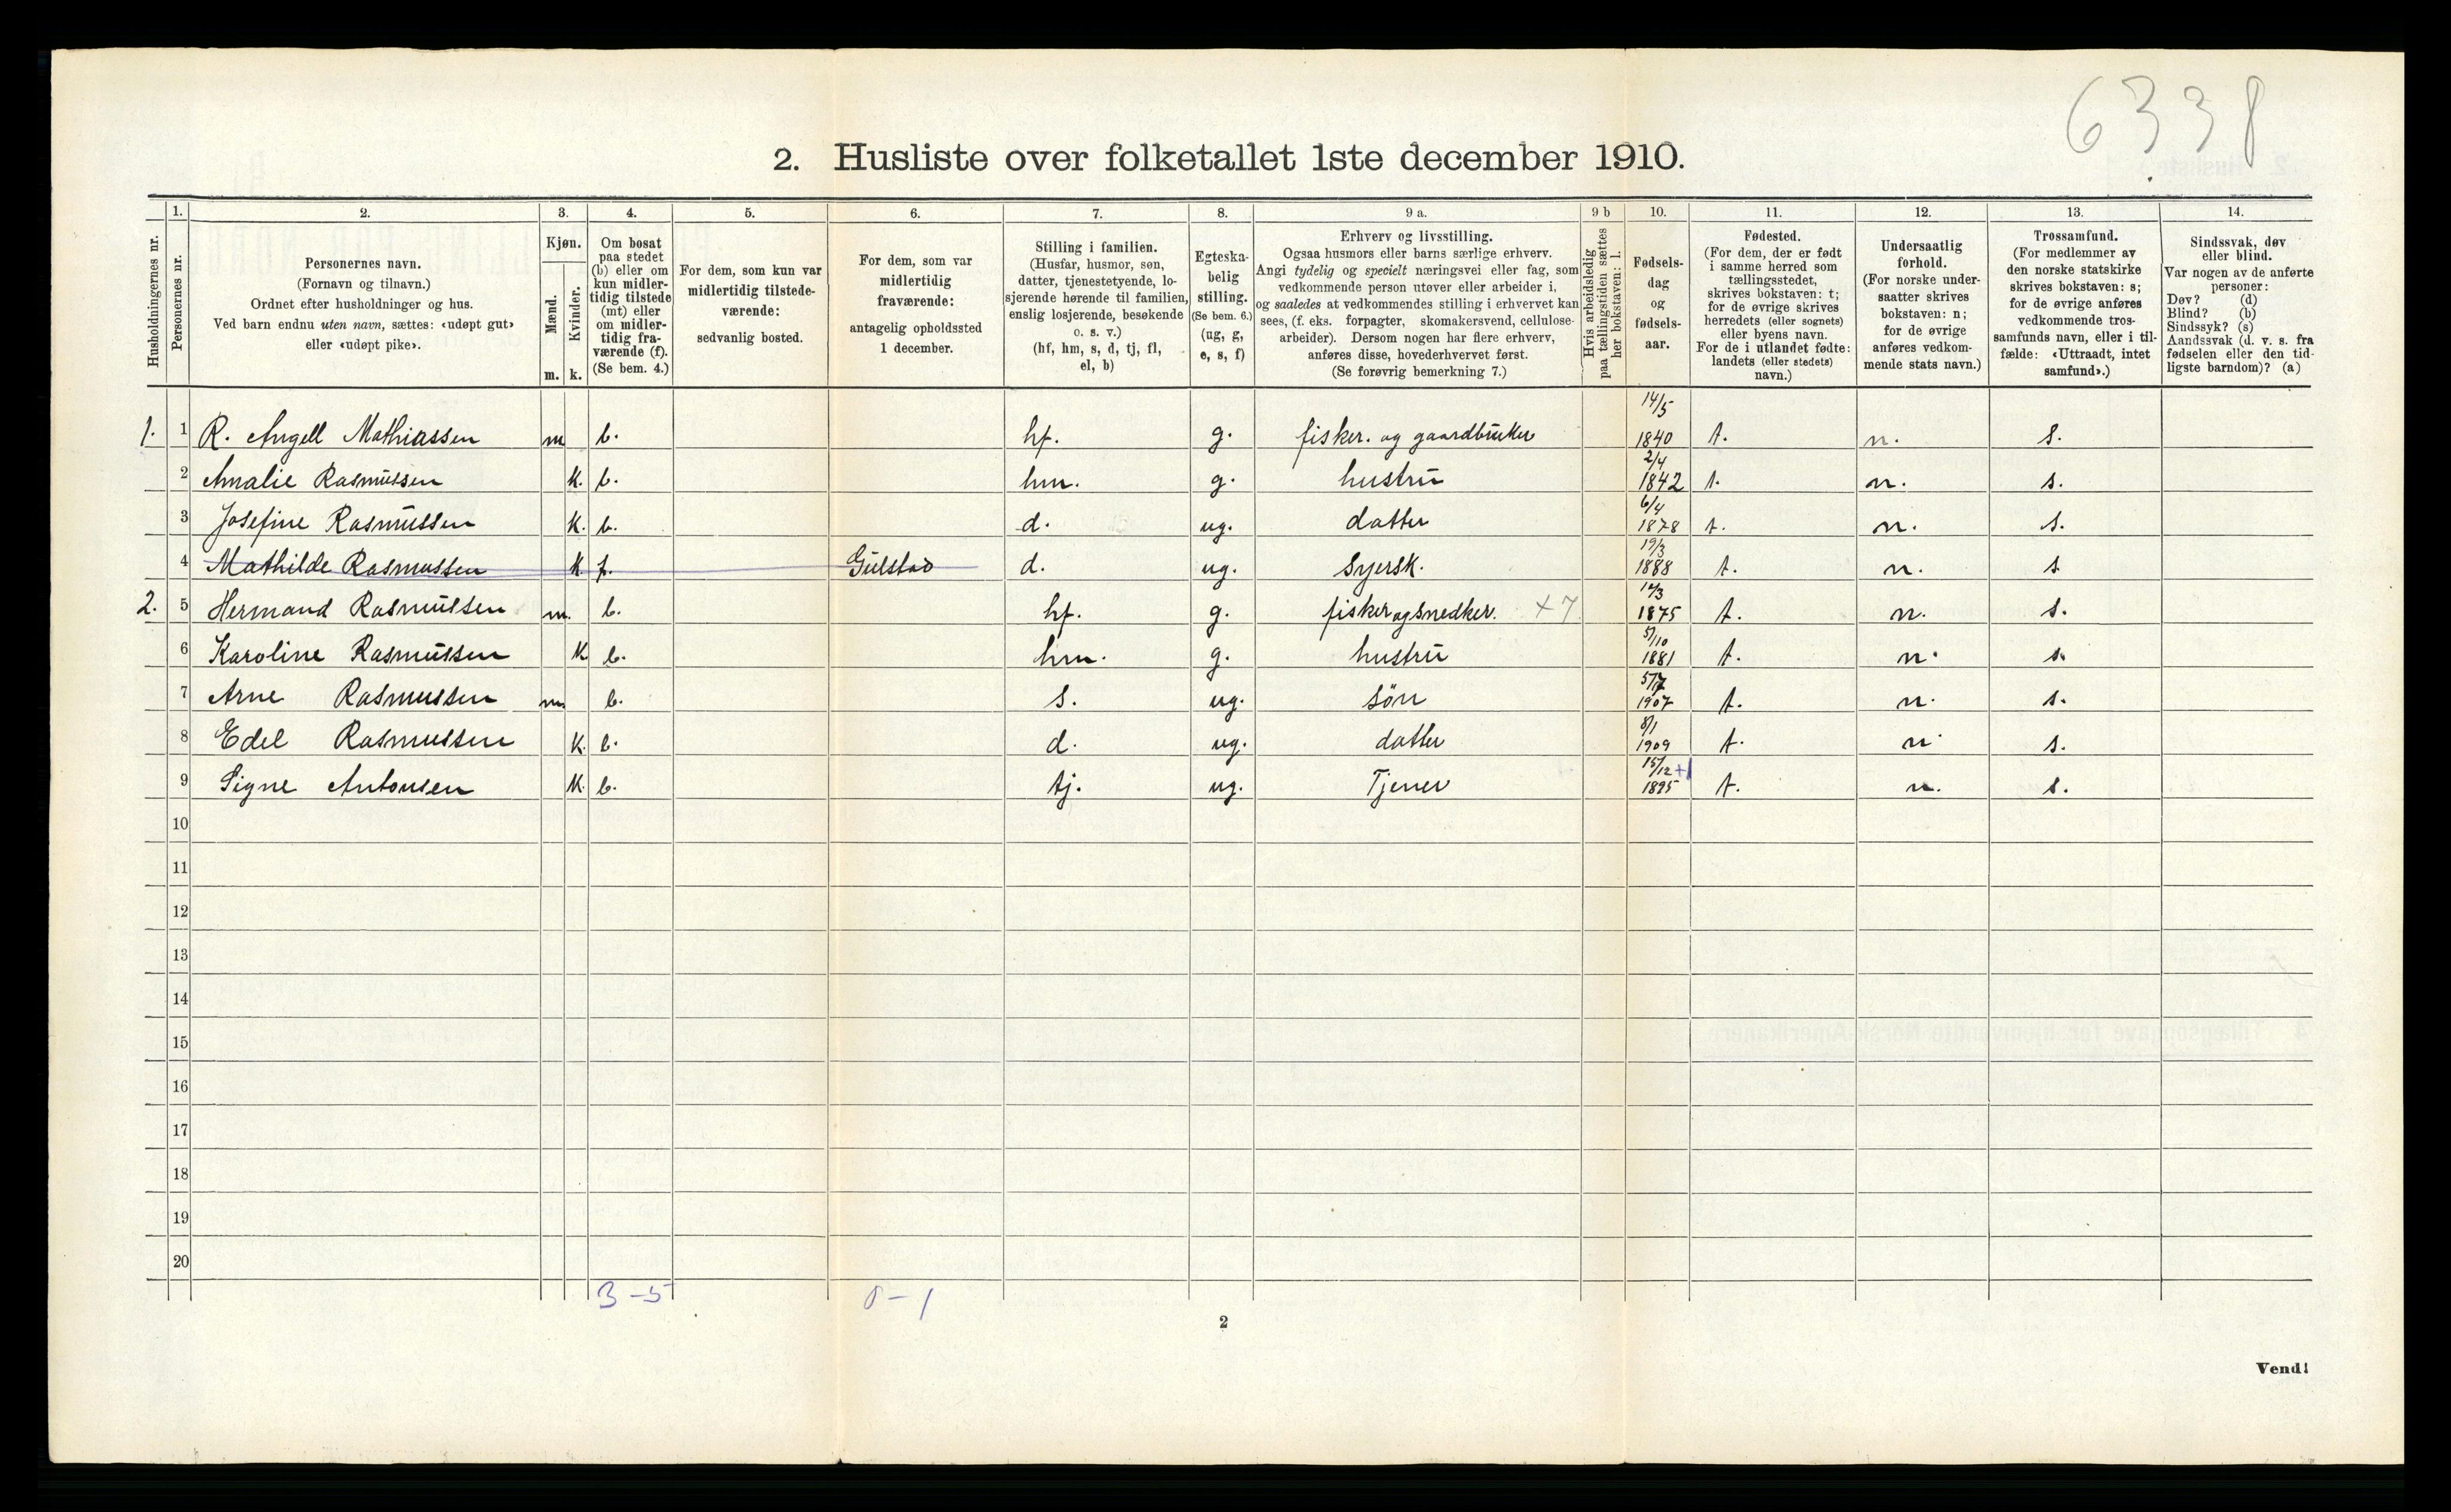 6338
2. Husliste over folketallet 1ste december 1910.
Husholdningernes nr.
1. Personernes nr.
2. Personernes navn.
(Fornavn og tilnavn.)
Ordnet efter husholdninger og hus.
Ved barn endnu uten navn, sættes: «udøpt gut»
eller «udøpt pike».
3. Kjøn.
Mænd. m.
Kvinder. k.
4. Om bosat
paa stedet
(b) eller om
kun midler-
tidig tilstede
(mt) eller
om midler-
tidig fra-
værende (f).
(Se bem. 4.)
5. For dem, som kun var
midlertidig tilstede-
værende:
sedvanlig bosted.
6. For dem, som var
midlertidig
fraværende:
antagelig opholdssted
1 december.
7. Stilling i familien.
(Husfar, husmor, søn,
datter, tjenestetyende, lo-
sjerende hørende til familien,
enslig losjerende, besøkende
o. s. v.)
(hf, hm, s, d, tj, fl,
el, b)
8. Egteska-
belig
stilling.
(Se bem. 6.)
(ug, g,
e, s, f)
9 a. Erhverv og livsstilling.
Ogsaa husmors eller barns særlige erhverv.
Angi tydelig og specielt næringsvei eller fag, som
vedkommende person utøver eller arbeider i,
og saaledes at vedkommendes stilling i erhvervet kan
sees, (f. eks. forpagter, skomakersvend, cellulose-
arbeider). Dersom nogen har flere erhverv,
anføres disse, hovederhvervet først.
(Se forøvrig bemerkning 7.)
9 b Hvis arbeidsledig
paa tællingstiden sættes
her bokstaven: l.
10. Fødsels-
dag
og
fødsels-
aar.
11. Fødested.
(For dem, der er født
i samme herred som
tællingsstedet,
skrives bokstaven: t;
for de øvrige skrives
herredets (eller sognets)
eller byens navn.
For de i utlandet fødte:
landets (eller stedets)
navn.)
12. Undersaatlig
forhold.
(For norske under-
saatter skrives
bokstaven: n;
for de øvrige
anføres vedkom-
mende stats navn.)
13. Trossamfund.
(For medlemmer av
den norske statskirke
skrives bokstaven: s;
for de øvrige anføres
vedkommende tros-
samfunds navn, eller i til-
fælde: «Uttraadt, intet
samfund».)
14. Sindssvak, døv
eller blind.
Var nogen av de anførte
personer:
Døv? (d)
Blind? (b)
Sindssyk? (s)
Aandssvak (d. v. s. fra
fødselen eller den tid-
ligste barndom)? (a)
1. 1 R. Angell Mathiassen m b. hf. g. fisker. og gaardbruker 14/5 1840 t. n. s.
2 Amalie Rasmussen k. b. hm. g. hustru 2/4 1842 t. n. s.
3 Josefine Rasmussen k. b. d. ug. datter 6/4 1878 t. n. s.
4 Mathilde Rasmussen k f. Gulstad d. ug. Syersk. 19/3 1888 t. n. s
2. 5 Hermand Rasmussen m. b. hf. g. fisker og snedker. +7 1875 t. n. s.
6 Karoline Rasmussen k b. hm. g. hustru 5/10 1881 t. n. s.
7 Arne Rasmussen m. b. s. ug. søn 5/7 1907 t. n. s.
8 Edel Rasmussen k. b. d. ug. datter 8/1 1909 t. n s.
9 Signe Antonsen k. b. tj. ug. Tjener 15/12 +1 1895 t. n. s.
10
11
12
13
14
15
16
17
18
19
20
3-5 0-1
2
Vend!